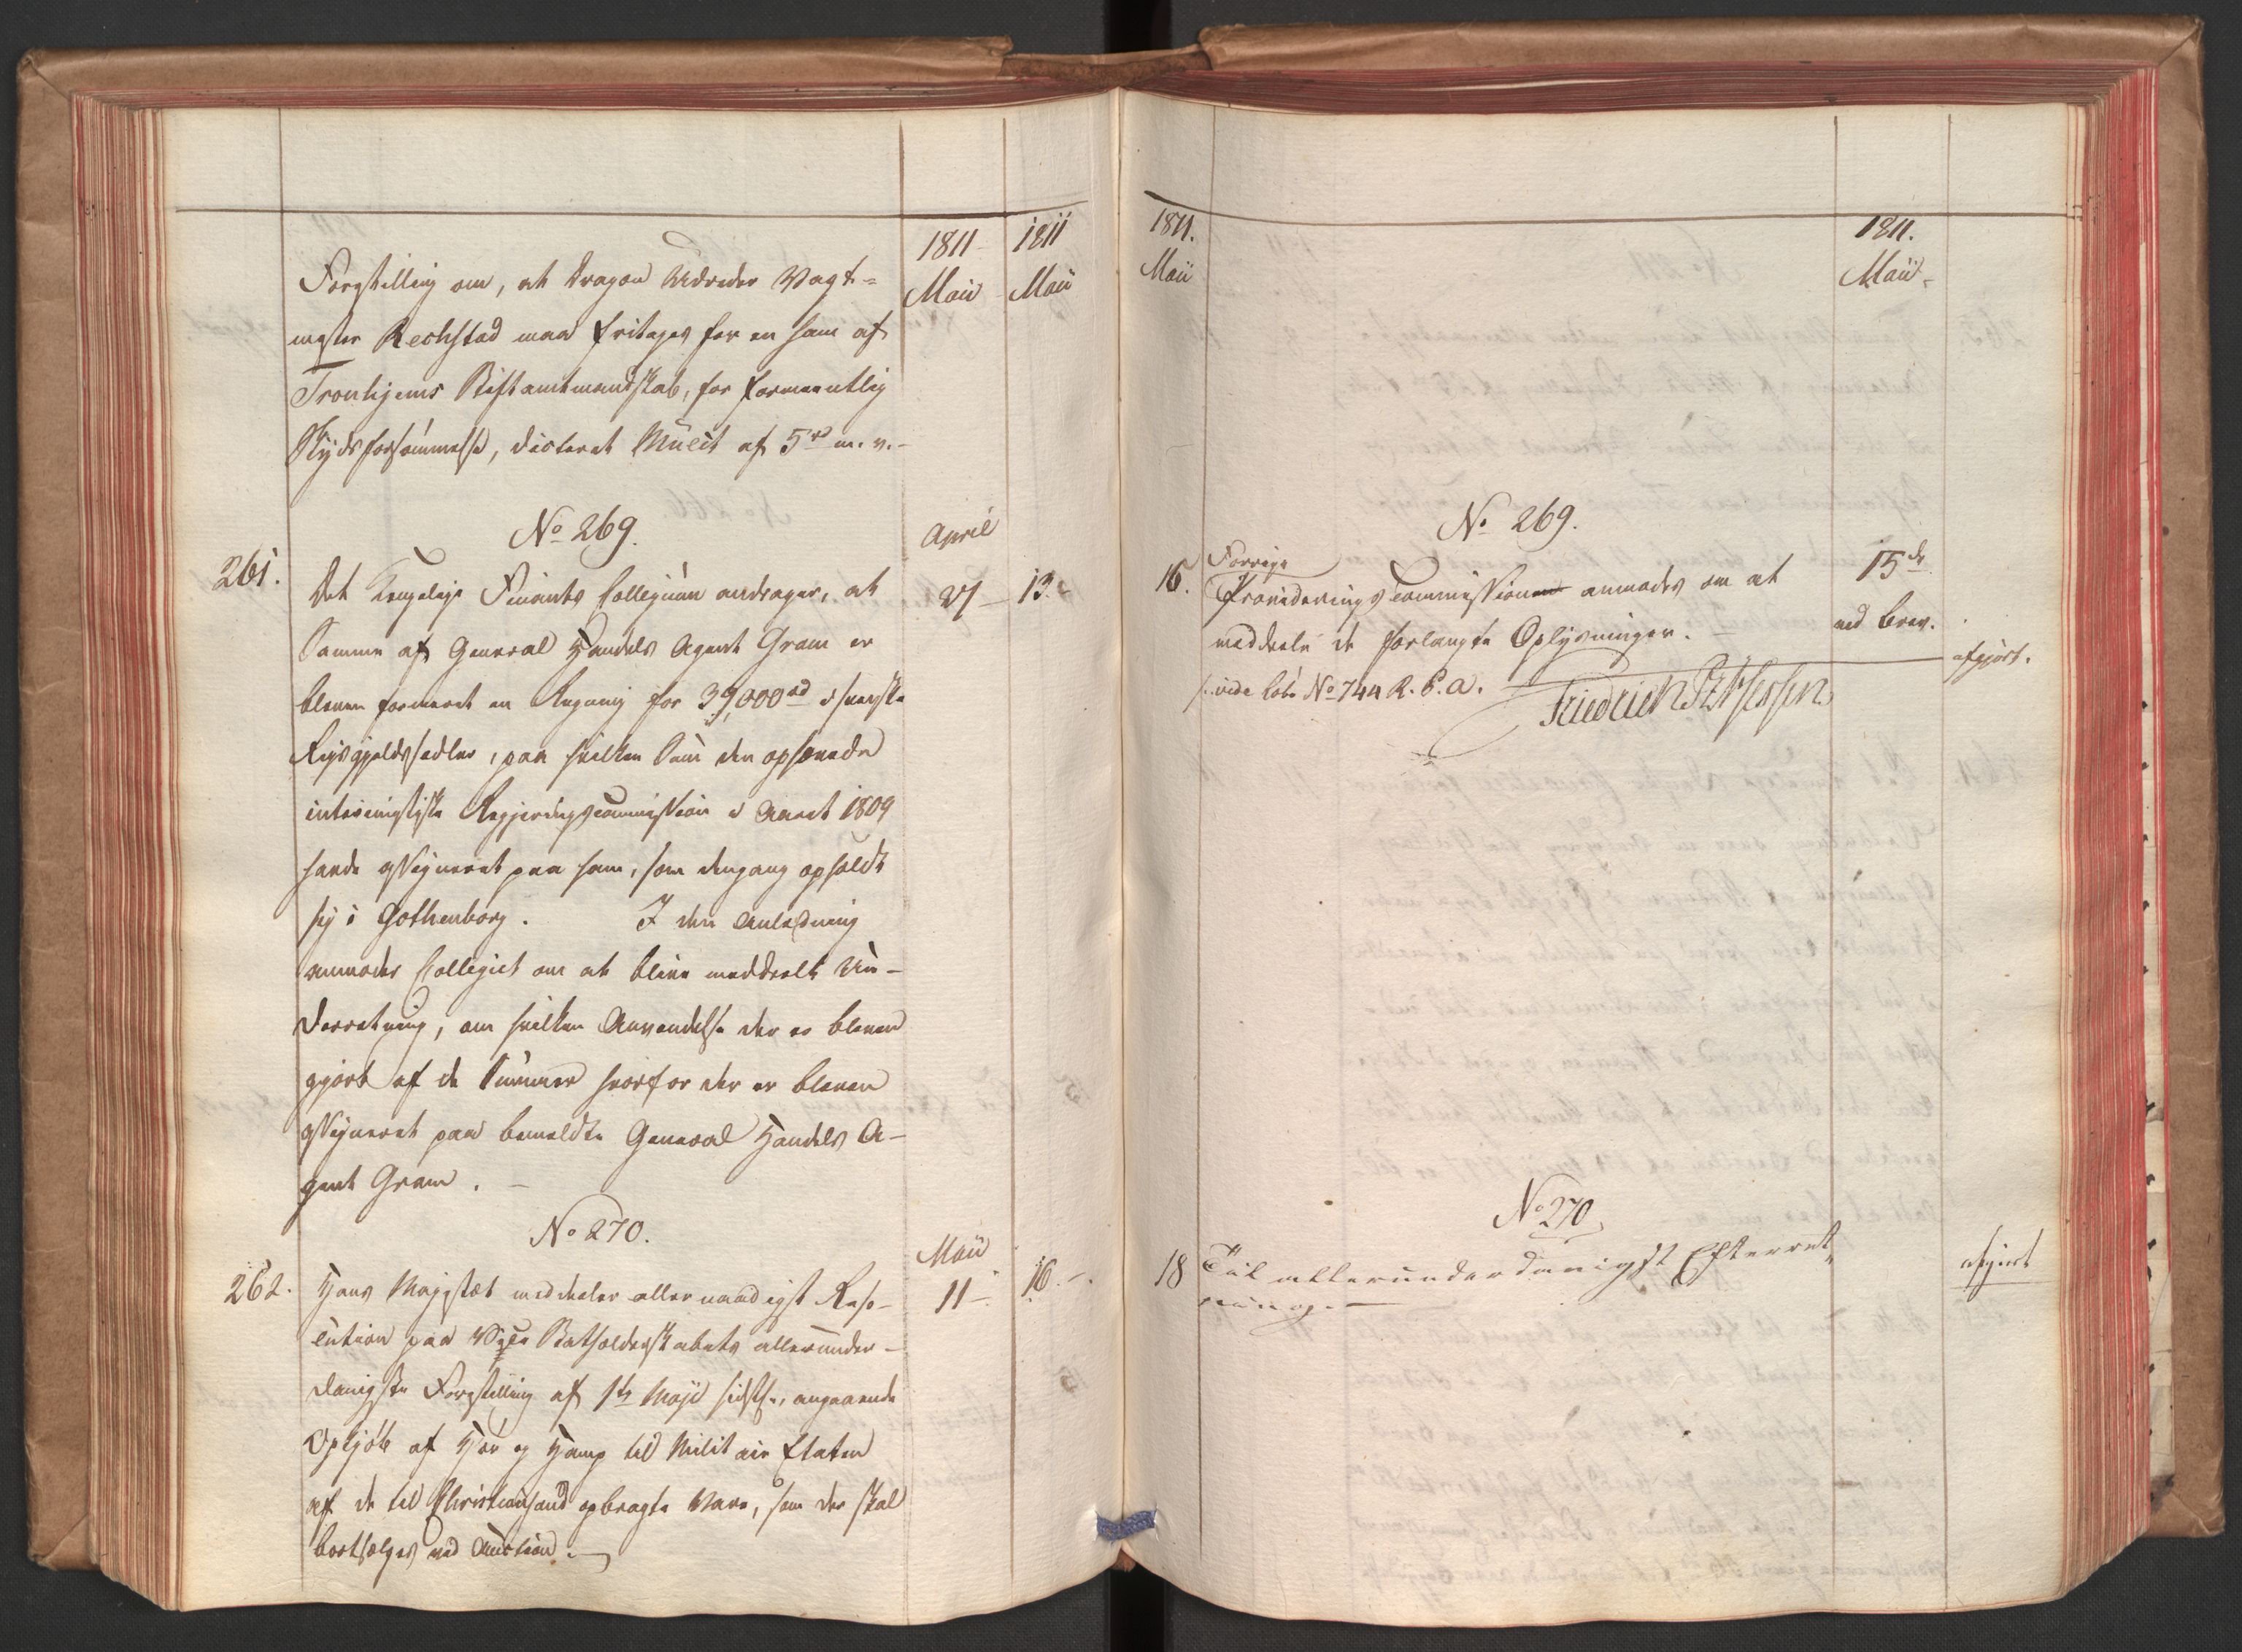 1811
Maii
1811
Maii
Forestilling om, at Dragon Udreder Vagt-
mester Rechstad maa fritages for en ham af
Tronhjems Stiftamtmandskab, for formeentlig
Skydsforsømmelse, dicteret Mulct af 5 rd m. v. -
No 269.
April
261.
Det Kongelige Finants Collegium andrager, at
27 - 13. -
Samme af General Handels Agent Gram er
bleven formeret en Regning for 39,000 rd svenske
Rigsgjeldssedler, paa hvilken Sum den ophævede
interimistiske Regjeringscommission i Aaret 1809
havde assigneret paa ham, som dengang opholdt
sig i Gothenborg. I den Anledning
anmoder Collegiet om at blive meddeelt Un-
derretning, om hvilken Anvendelse der er bleven
gjort af de Summer hvorfor der er bleven
assigneret paa bemeldte General Handels A-
gent Gram. -
No 270.
Maii
262.
Hans Majestæt meddeler allernaadigst Reso-
11 - 16. -
lution paa Vice Statholderskabets allerunder-
danigste Forestilling af 1te Maji sidstl., angaaende
Opkjøb af Hør og Hamp til Militair Etaten
af de til Christiansand opbragte Vare, som der skal
bortsælges ved Auction. -
1811.
Maii
1811.
Maii -
No 269.
16.
Forrige
Provideringscommission anmodes om at
15 de
meddele de forlangte Oplysninger. -
ved Brev.
afgjort.
/: vide No 744 R. P. a.
Friedrich PzHessen
No 270
18
Til allerunderdanigst Efterret-
ning. -
afgjort